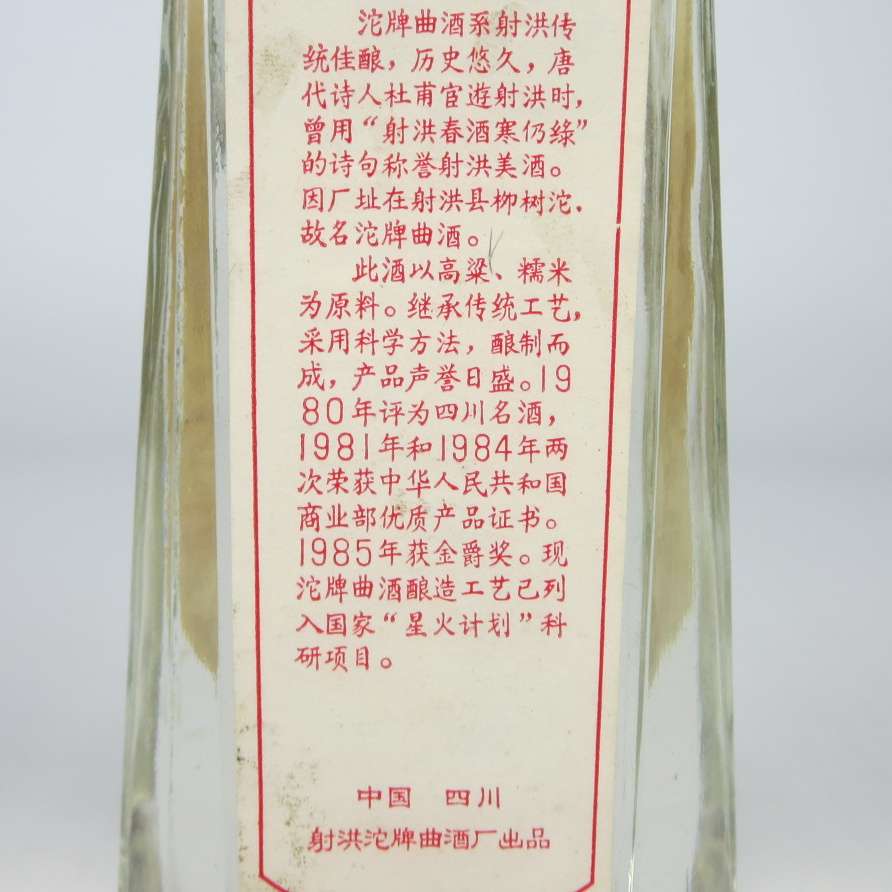 沱牌曲酒系射洪传
统佳酿，历史悠久，唐
代诗人杜甫官遊射洪时，
曾用“射洪春酒寒仍绿”
的诗句称誉射洪美酒。
因厂址在射洪县柳树沱．
故名沱牌曲酒。
此酒以高粱、糯米
为原料。继承传统工艺，
采用科学方法，酿制而
成，产品声誉日盛。19
80年评为四川名酒，
1981年和1984年两
次荣获中华人民共和国
商业部优质产品证书。
1985年获金爵奖。现
沱牌曲酒酿造工艺已列
入国家“星火计划”科
研项目。
中国　四川
射洪沱牌曲酒厂出品